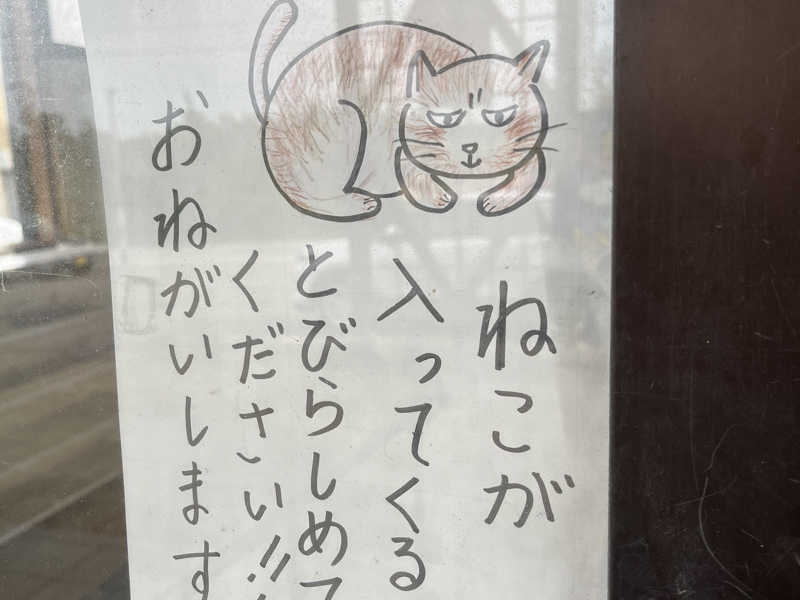 ねこが
入ってくる
とびらしめて
ください!!
おねがいします